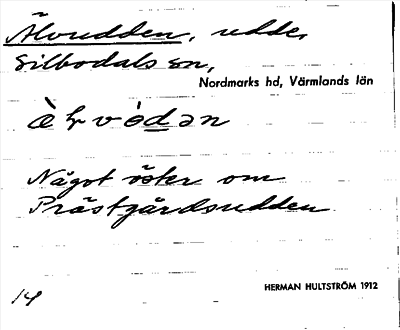 Älvudden, udde,
Silbodals sn,
Nordmarks hd, Värmlands län
Något öster om
Prästgårdsudden.
14
HERMAN HULTSTRÖM 1912